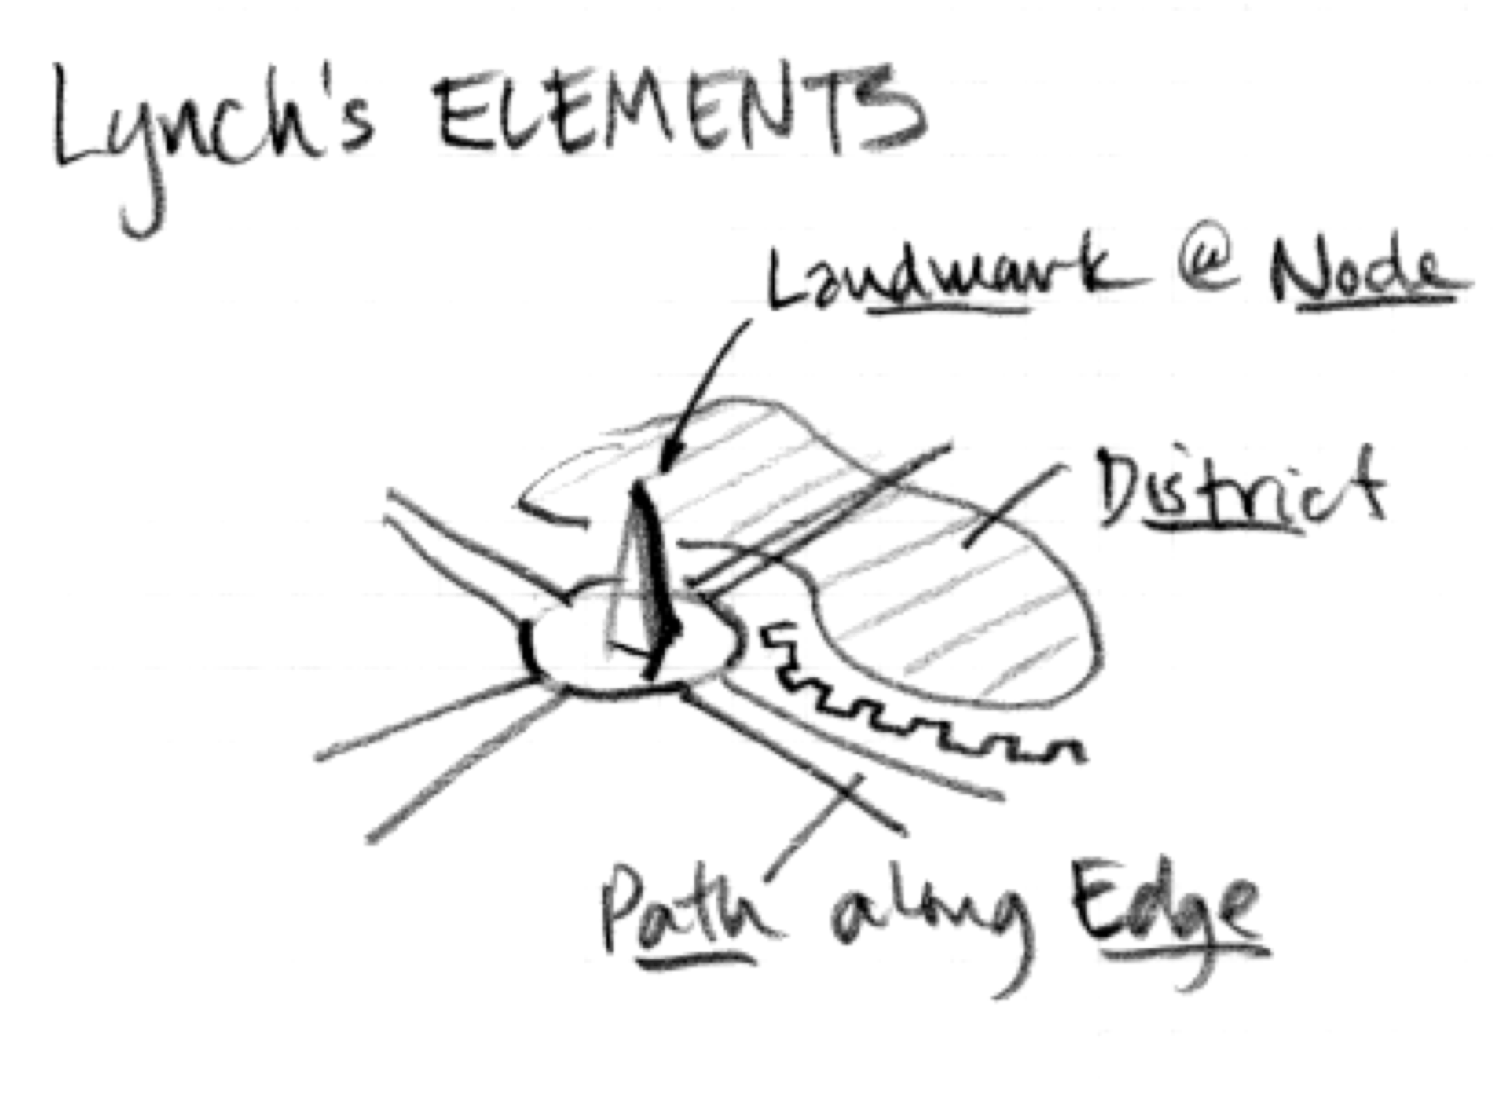 Lynch's ELEMENTS
Landmark @ Node
District
Path along Edge